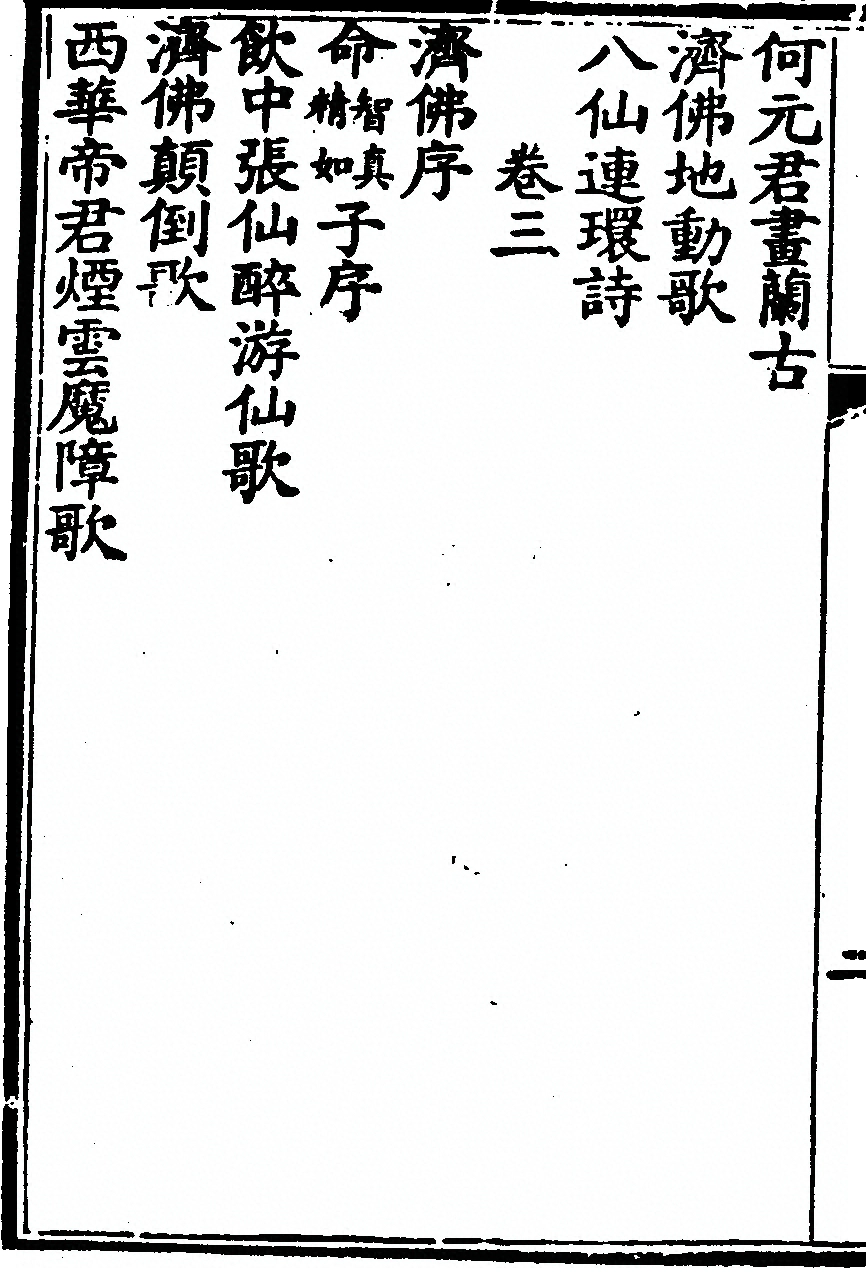 何元君畫蘭古
濟佛地動歌
八仙連環詩
卷三
濟佛序
命智真精如子序
飲中張仙醉游仙歌
濟佛顛倒歌
西華帝君煙雲魔障歌